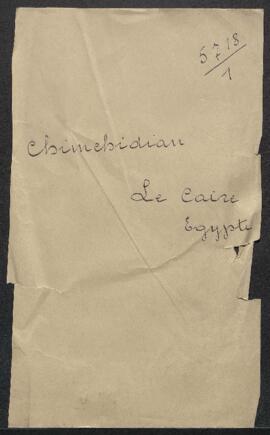 5718/1
Chimchidian
Le Caire
Egypte